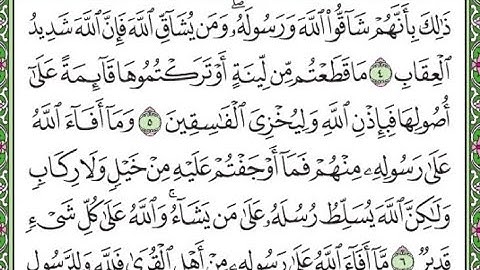 ذَٰلِكَ بِأَنَّهُمْ شَآقُّوا۟ ٱللَّهَ وَرَسُولَهُۥ ۖ وَمَن يُشَآقِّ ٱللَّهَ فَإِنَّ ٱللَّهَ شَدِيدُ
ٱلْعِقَابِ ٤ مَا قَطَعْتُم مِّن لِّينَةٍ أَوْ تَرَكْتُمُوهَا قَآئِمَةً عَلَىٰٓ
أُصُولِهَا فَبِإِذْنِ ٱللَّهِ وَلِيُخْزِىَ ٱلْفَـٰسِقِينَ ٥ وَمَآ أَفَآءَ ٱللَّهُ
عَلَىٰ رَسُولِهِۦ مِنْهُمْ فَمَآ أَوْجَفْتُمْ عَلَيْهِ مِنْ خَيْلٍ وَلَا رِكَابٍ
وَلَـٰكِنَّ ٱللَّهَ يُسَلِّطُ رُسُلَهُۥ عَلَىٰ مَن يَشَآءُ ۚ وَٱللَّهُ عَلَىٰ كُلِّ شَىْءٍ
قَدِيرٌ ٦ مَّآ أَفَآءَ ٱللَّهُ عَلَىٰ رَسُولِهِۦ مِنْ أَهْلِ ٱلْقُرَىٰ فَلِلَّهِ وَلِلرَّسُولِ